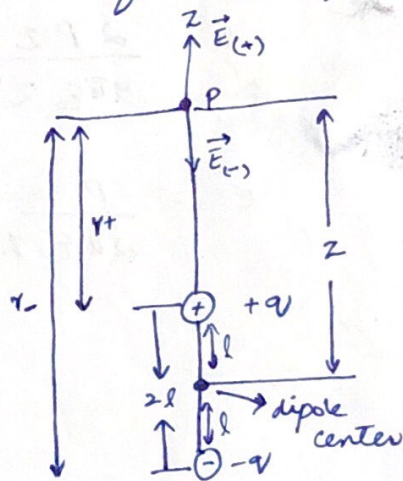 z
E⃗(+)
P
E⃗(-)
r+
r-
z
+ +q
l
2l
dipole
center
l
- -q